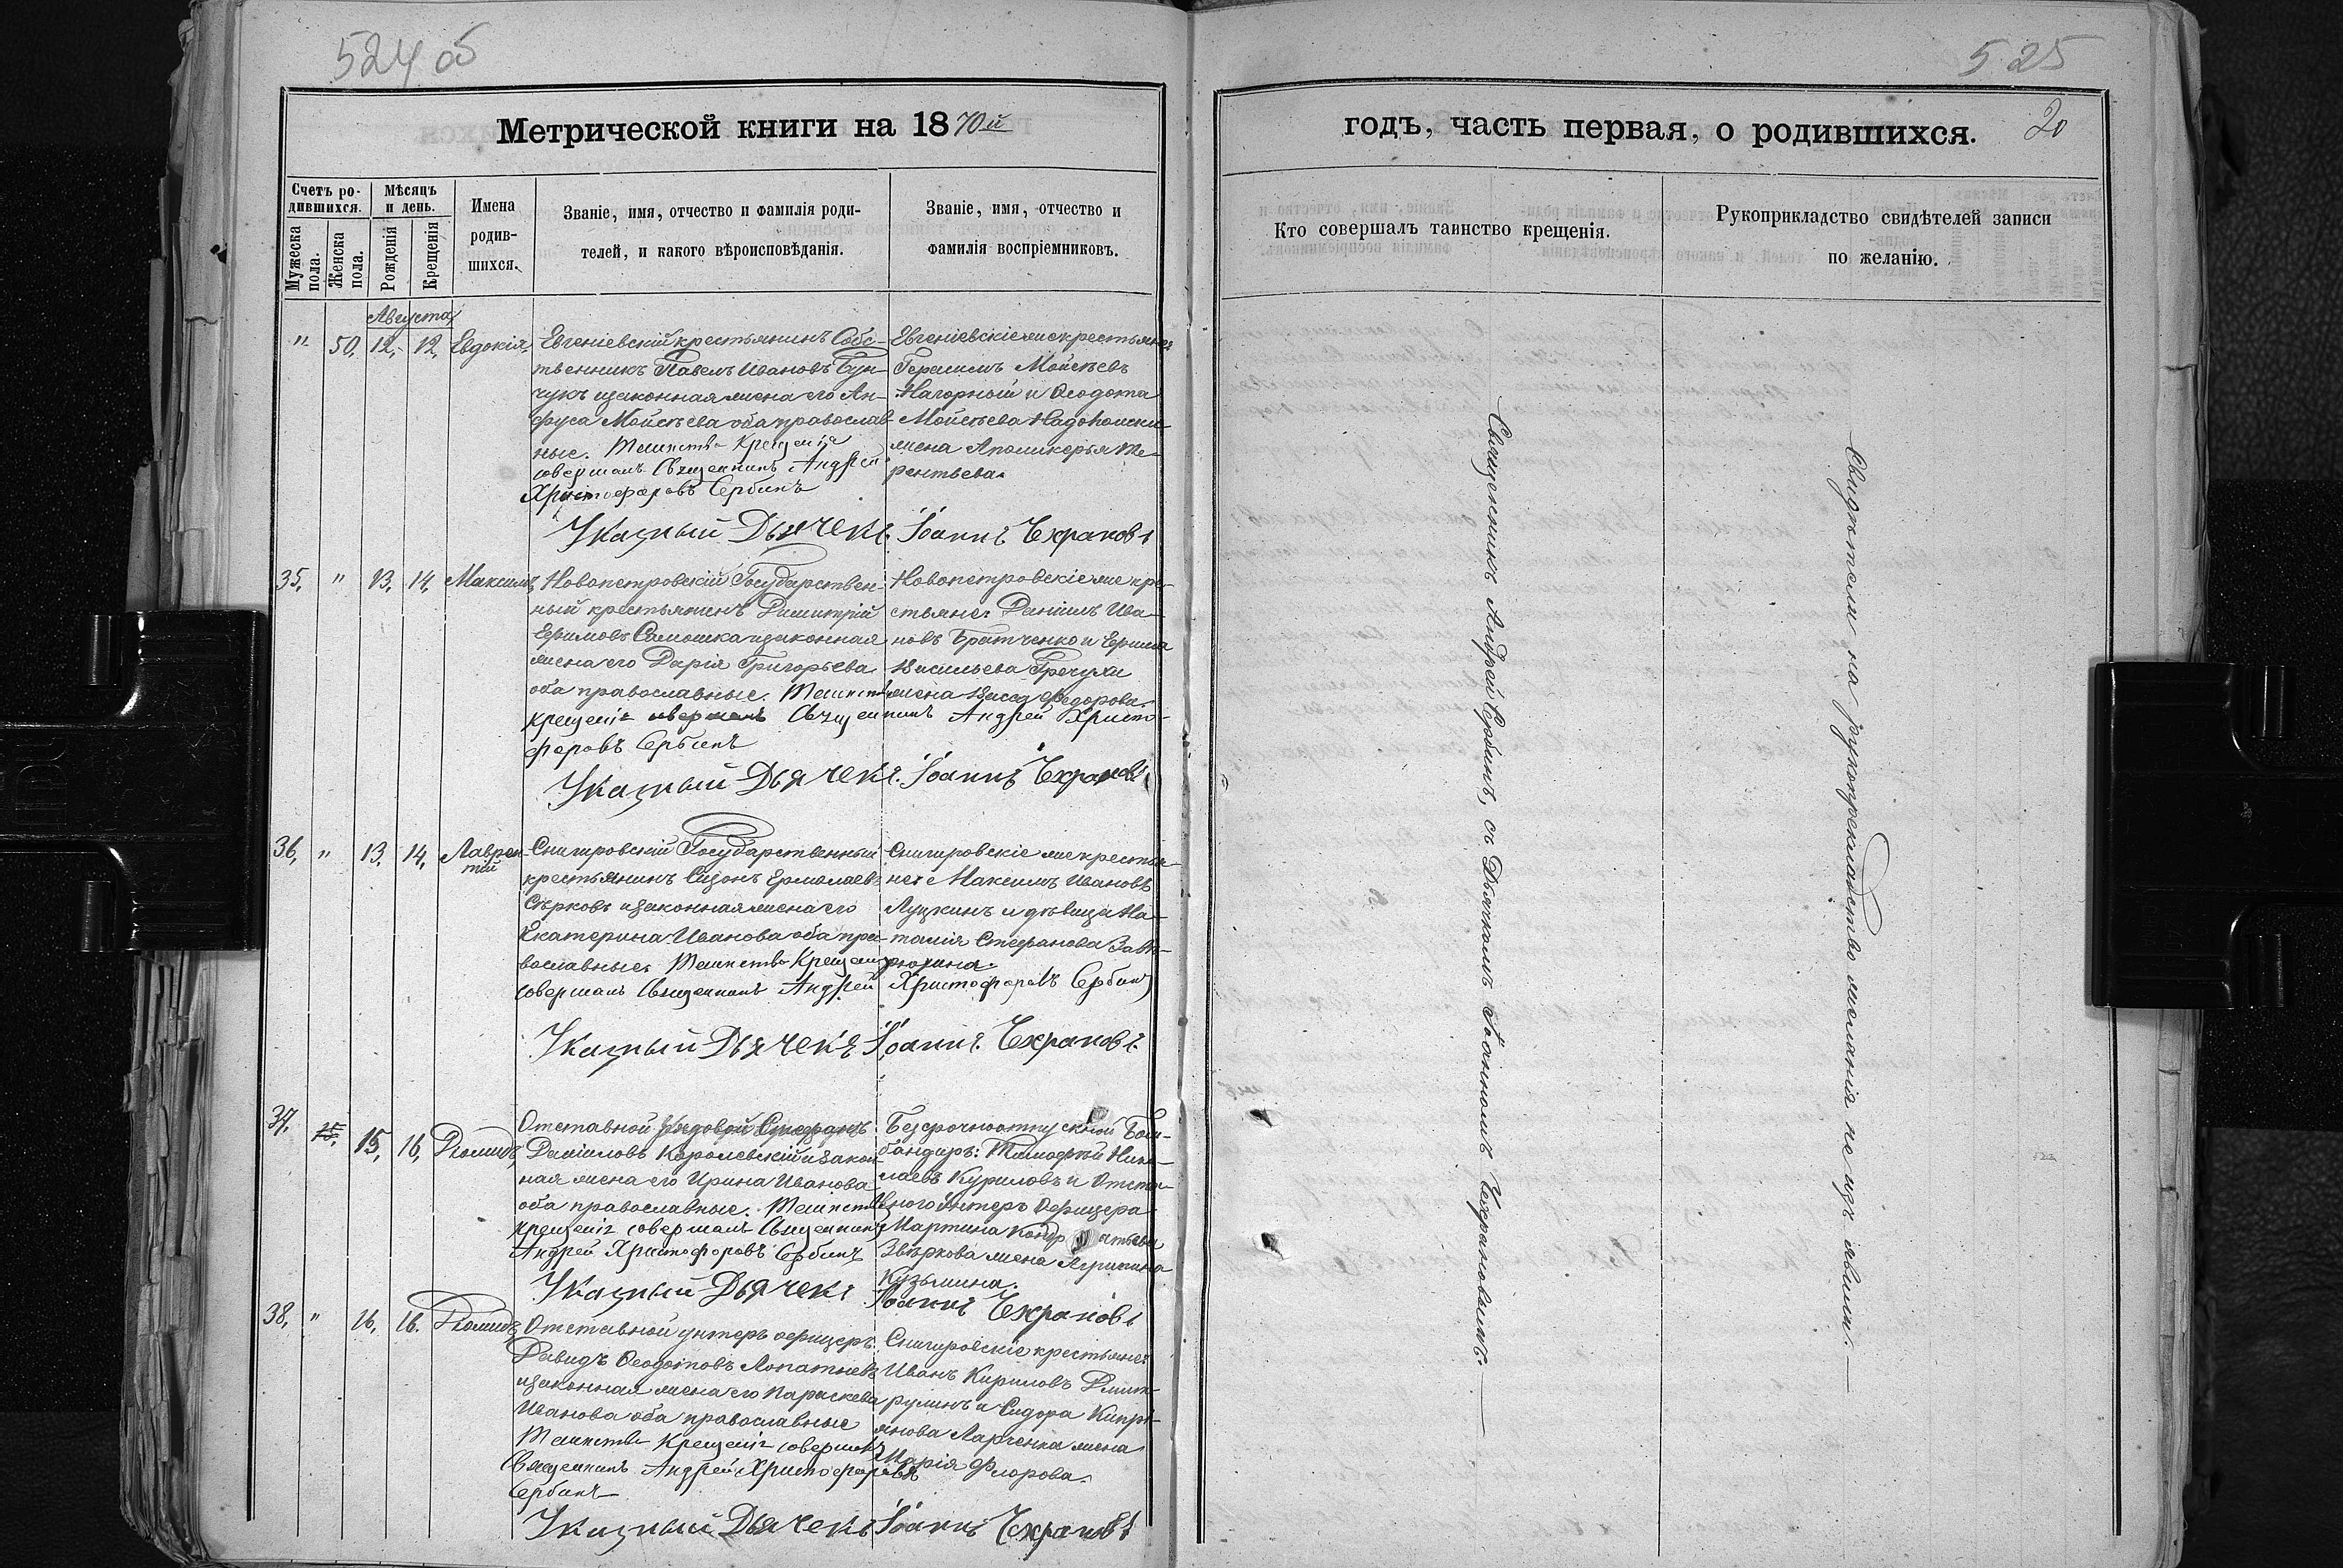 524 об
Метрической книги на 1870й
Счетъ ро-
дившихся.
Мѣсяцъ
и день.
Имена
родив-
шихся.
Званіе, имя, отчество и фамилія роди-
телей, и какого вѣроисповѣданія.
Званіе, имя, отчество и
фамилія воспріемниковъ.
Мужеска
пола.
Женска
пола.
Рожденія
Крещенія
Августа
" 50, 12, 12, Евдокія,
Евгеніевскій крестьянинъ Собс-
твенникъ Павелъ Ивановъ Бун-
чукъ и законная жена его Ан-
фуса Мойсѣева оба православ-
ные. Таинство Крещенія
совершалъ Священникъ Андрей
Христофоровъ Сербинъ
Евгеніевскіе же крестьяне:
Герасимъ Мойсѣевъ
Нагорный и Ѳеодота
Мойсѣева
жена Те-
рентьева.
Указный Дьячекъ Іоаннъ Чехрановъ
35, " 13, 14, Максимъ,
Новопетровскій Государствен-
ный крестьянинъ Димитрій
Ефимовъ Самошка и законная
жена его Дарія Григорьева
оба православные. Таинство
крещенія совершалъ Священникъ Андрей Христо-
форовъ Сербинъ
Новопетровскіе же кре-
стьяне: Даніилъ Ива-
новъ Братченко и
Васильева Гречухи
жена Васса Федорова.
Указный Дьячекъ. Іоаннъ Чехрановъ
36, " 13, 14, Лаврен-
тій
Снигировскій Государственный
крестьянинъ Сизонъ Ермолаевъ
Сѣрковъ и законная жена его
Екатерина Иванова оба пра-
вославные. Таинство Крещенія
совершалъ Священникъ Андрей Христофоровъ Сербинъ
Снигировскіе же крестья-
не: Максимъ Ивановъ
Луцкинъ и дѣвица На-
талія Стефанова
Указный Дьячекъ Іоаннъ Чехрановъ.
37, 15, 15, 16, Діомидъ,
Отставной рядовой Стефанъ
Даніиловъ Королевскій и закон-
ная жена его Ирина Иванова
оба православные. Таинство
Крещенія совершалъ Священникъ
Андрей Христофоровъ Сербинъ
Безсрочноотпускной Бом-
бандиръ: Тимофей Нико-
лаевъ Куриловъ и Отста-
вного Унтеръ Офицера
Мартина Кондратьева
Звѣркова жена Агрипина
Кузьмина.
Указный Дьячекъ Іоаннъ Чехрановъ
38, " 16, 16. Діомидъ,
Отставной унтеръ офицеръ
Давидъ Ѳеодотовъ Лопатневъ
и законная жена его Параскева
Иванова оба православные
Таинство Крещенія совершалъ
Священникъ Андрей Христофоровъ
Сербинъ
Снигировскіе крестьяне:
Иванъ Кириловъ Дмит-
рулинъ и Сидора Кипрі-
янова Ларченка жена
Марія Флорова.
Указный Дьячекъ Іоаннъ Чехрановъ
525
годъ, часть первая, о родившихся. 20
Кто совершалъ таинство крещенія.
Рукоприкладство свидѣтелей записи
по желанію.
Священникъ Андрей Сербинъ, съ Дьячкомъ Іоанномъ Чехрановымъ.
Свидѣтели на рукоприкладство желанія не изъявили.